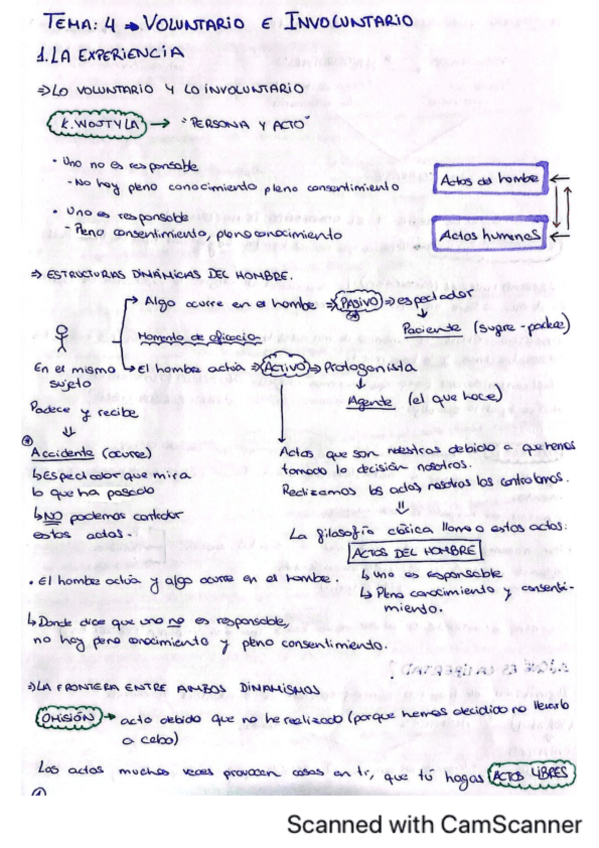 TEMA: 4 → VOLUNTARIO E INVOLUNTARIO
1. LA EXPERIENCIA
⇒ LO VOLUNTARIO Y LO INVOLUNTARIO
K. WOJTYLA → "PERSONA Y ACTO"
• Uno no es responsable
- No hay pleno conocimiento pleno consentimiento
Actos del hombre
• Uno es responsable
- Pleno consentimiento, pleno conocimiento
Actos humanos
⇒ ESTRUCTURAS DINÁMICAS DEL HOMBRE.
Algo ocurre en el hombre ⇒ PASIVO ⇒ espectador
Paciente (sufre - padece)
Momento de
En el mismo sujeto
El hombre actúa ⇒ ACTIVO ⇒ Protagonista
Agente (el que hace)
Padece y recibe
Accidente (ocurre)
↳ Espectador que mira
lo que ha pasado
↳ NO podemos controlar
estos actos.
Actos que son nuestros debido a que hemos
tomado la decisión nosotros.
Realizamos los actos, nosotros los controlamos.
La filosofía clásica llama a estos actos:
ACTOS DEL HOMBRE
↳ Uno es responsable
↳ Pleno conocimiento y consenti-
miento.
• El hombre actúa y algo ocurre en el hombre.
↳ Donde dice que uno no es responsable,
no hay pleno conocimiento y pleno consentimiento.
⇒ LA FRONTERA ENTRE AMBOS DINAMISMOS
OMISIÓN → acto debido que no he realizado (porque hemos decidido no llevarlo
a cabo)
Los actos muchas veces provocan cosas en ti, que tú hagas ACTOS LIBRES
Scanned with CamScanner